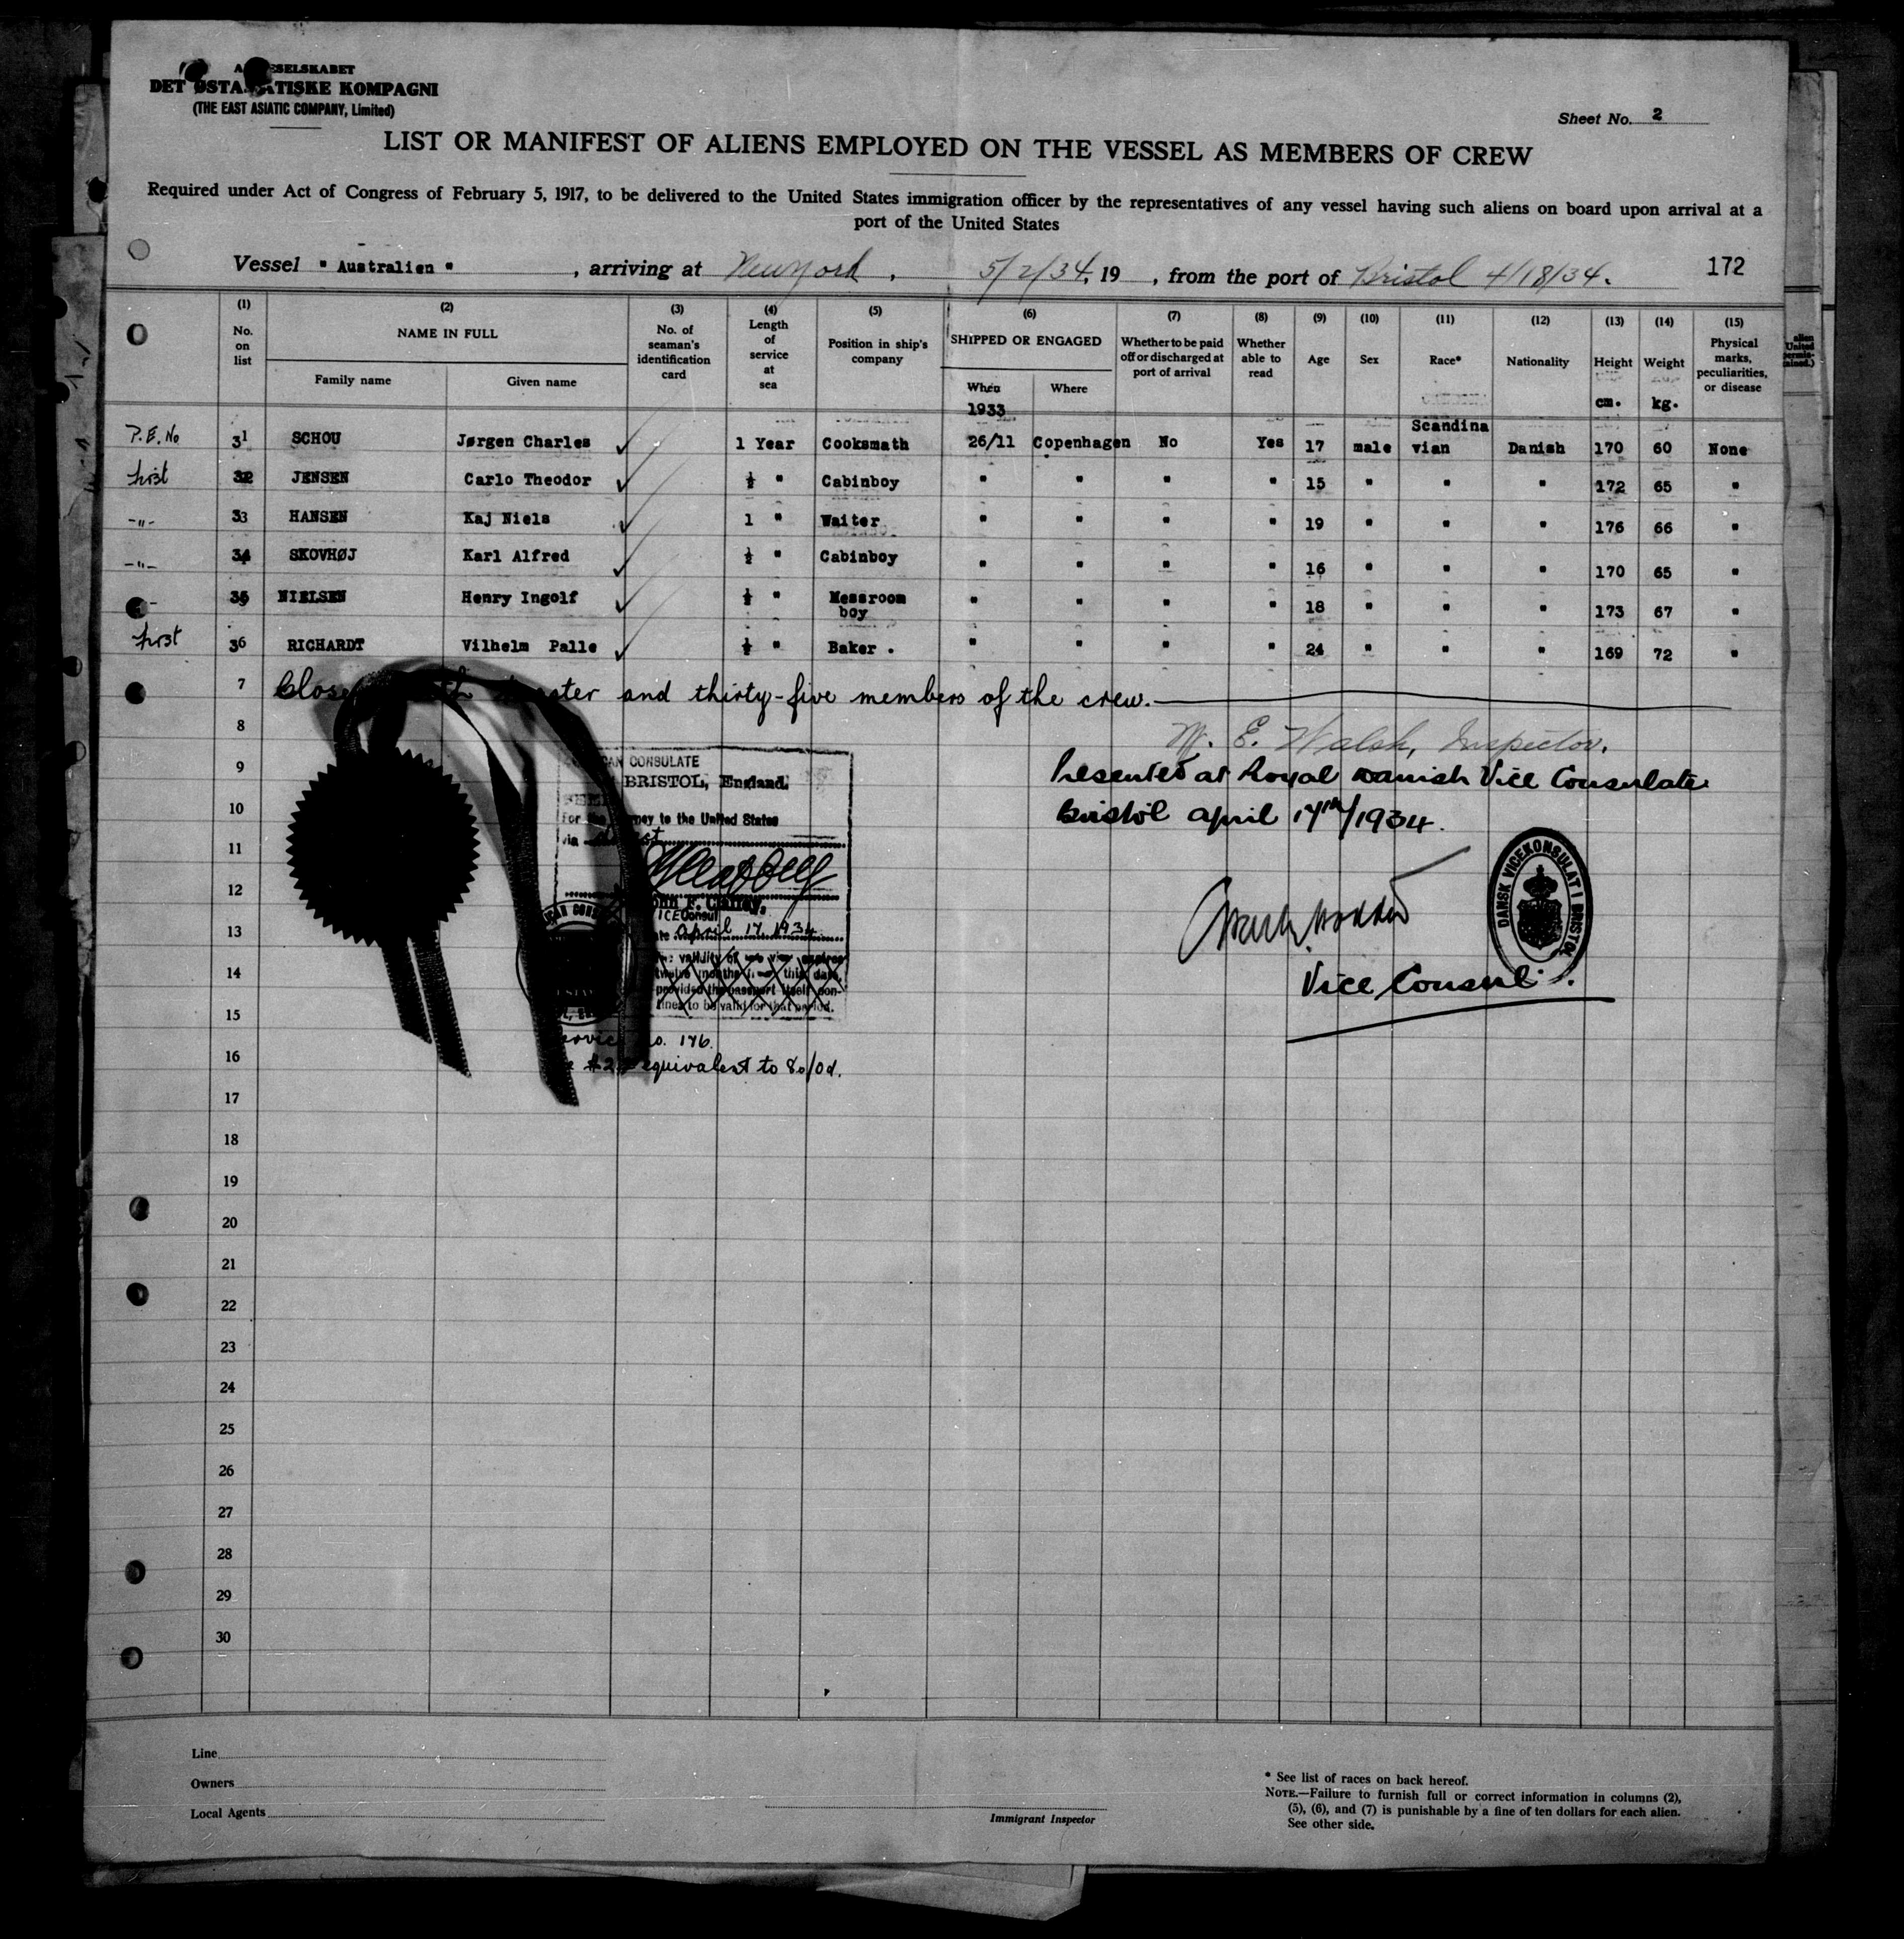 DET ØSTA TISKE KOMPAGNI
(THE EAST ASIATIC COMPANY, Limited)
Sheet No. 2
LIST OR MANIFEST OF ALIENS EMPLOYED ON THE VESSEL AS MEMBERS OF CREW
Required under Act of Congress of February 5, 1917, to be delivered to the United States immigration officer by the representatives of any vessel having such aliens on board upon arrival at a
port of the United States
Vessel " Australien " , arriving at New York , 5/2/34, 19 , from the port of Bristol 4/18/34. 172
(1) (2) (3) (4) (5) (6) (7) (8) (9) (10) (11) (12) (13) (14) (15)
No. on list NAME IN FULL No. of seaman's identification card Length of service at sea Position in ship's company SHIPPED OR ENGAGED Whether to be paid off or discharged at port of arrival Whether able to read Age Sex Race* Nationality Height Weight Physical marks, peculiarities, or disease
Family name Given name When Where cm. kg.
1933
P.E. No 31 SCHOU Jørgen Charles ✓ 1 Year Cooksmath 26/11 Copenhagen No Yes 17 male Scandina vian Danish 170 60 None
first 32 JENSEN Carlo Theodor ✓ ½ " Cabinboy " " " " 15 " " " 172 65 "
-"- 33 HANSEN Kaj Niels ✓ 1 " Waiter " " " " 19 " " " 176 66 "
-"- 34 SKOVHØJ Karl Alfred ✓ ½ " Cabinboy " " " " 16 " " " 170 65 "
35 NIELSEN Henry Ingolf ✓ ½ " Messroom boy " " " " 18 " " " 173 67 "
first 36 RICHARDT Vilhelm Palle ✓ ½ " Baker . " " " " 24 " " " 169 72 "
7 and thirty-five members of the crew.
8 W. E. Walsh, Inspector.
9 Presented at Royal Danish Vice Consulate
10 Bristol april 17th/1934.
11
12
13
14 Vice Consul.
15
16
17
18
19
20
21
22
23
24
25
26
27
28
29
30
CONSULATE
BRISTOL, England.
to the United States
via
ICE Consul
April 17 1934
validity of
twelve months this date,
provided the passport itself con-
to be valid for that period.
No. 176.
equivalent to 8/0d.
DANSK VICEKONSULAT I BRISTOL
Line
Owners
Local Agents
Immigrant Inspector
* See list of races on back hereof.
NOTE.—Failure to furnish full or correct information in columns (2),
(5), (6), and (7) is punishable by a fine of ten dollars for each alien.
See other side.